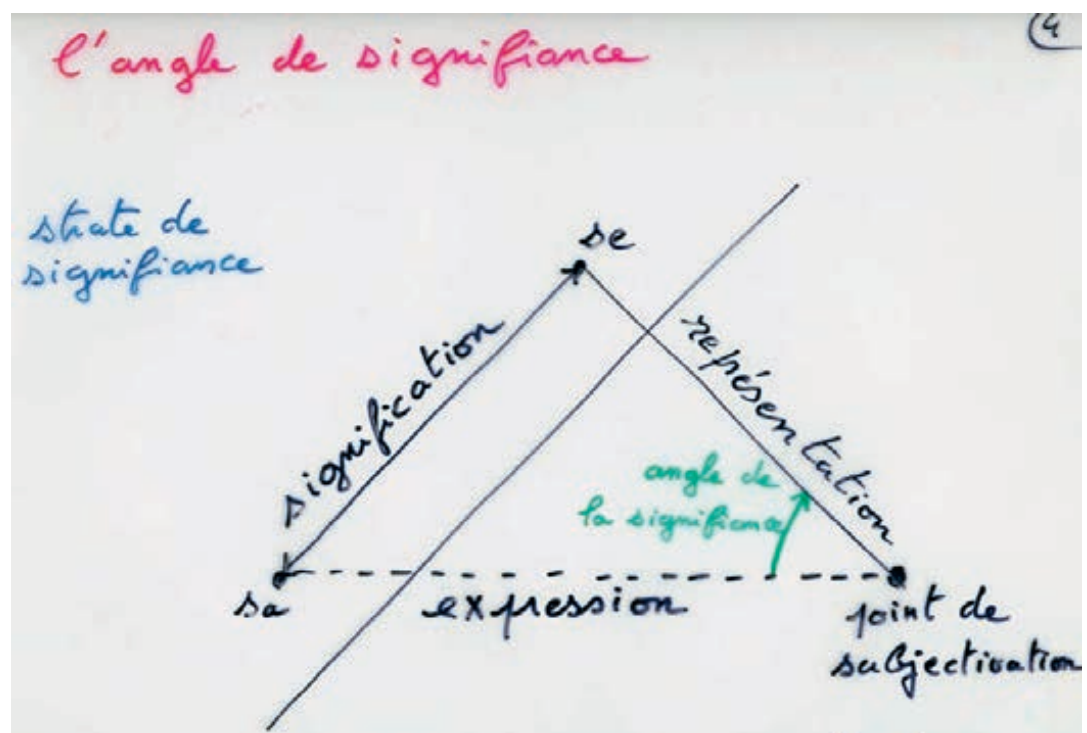 l'angle de signifiance
4
strate de
signifiance
se
signification
représentation
angle de
la signifiance
sa
expression
point de
subjectivation